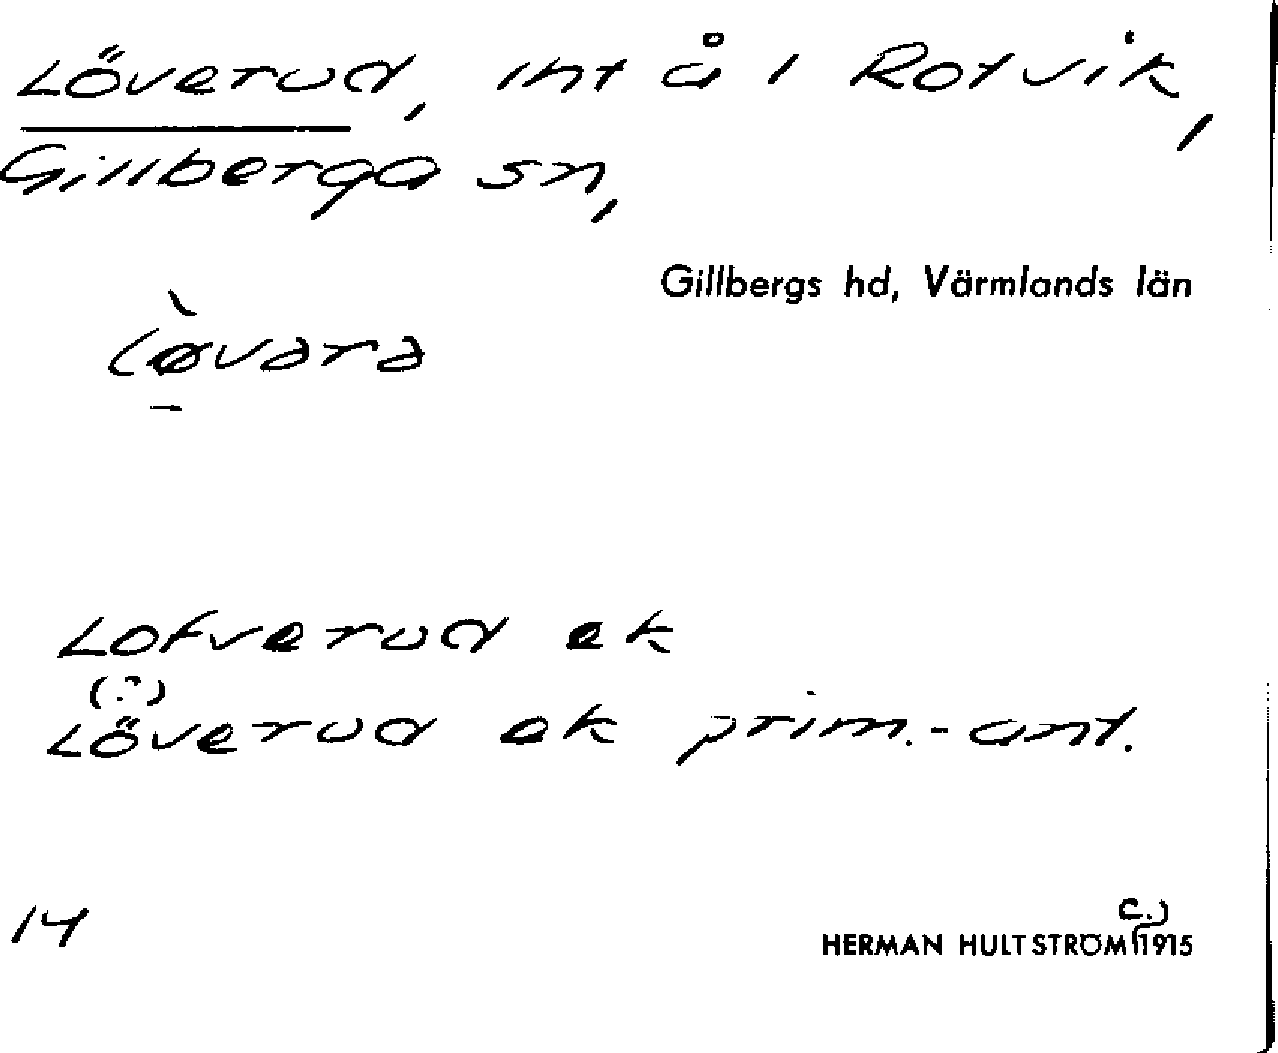 Löverud, int å i Rotvik,
Gillberga sn,
Gillbergs hd, Värmlands län
lø̀vərə
Lofverud ek
(?)
Löverud ek prim.-ant.
14
c.)
HERMAN HULTSTRÖM 1915